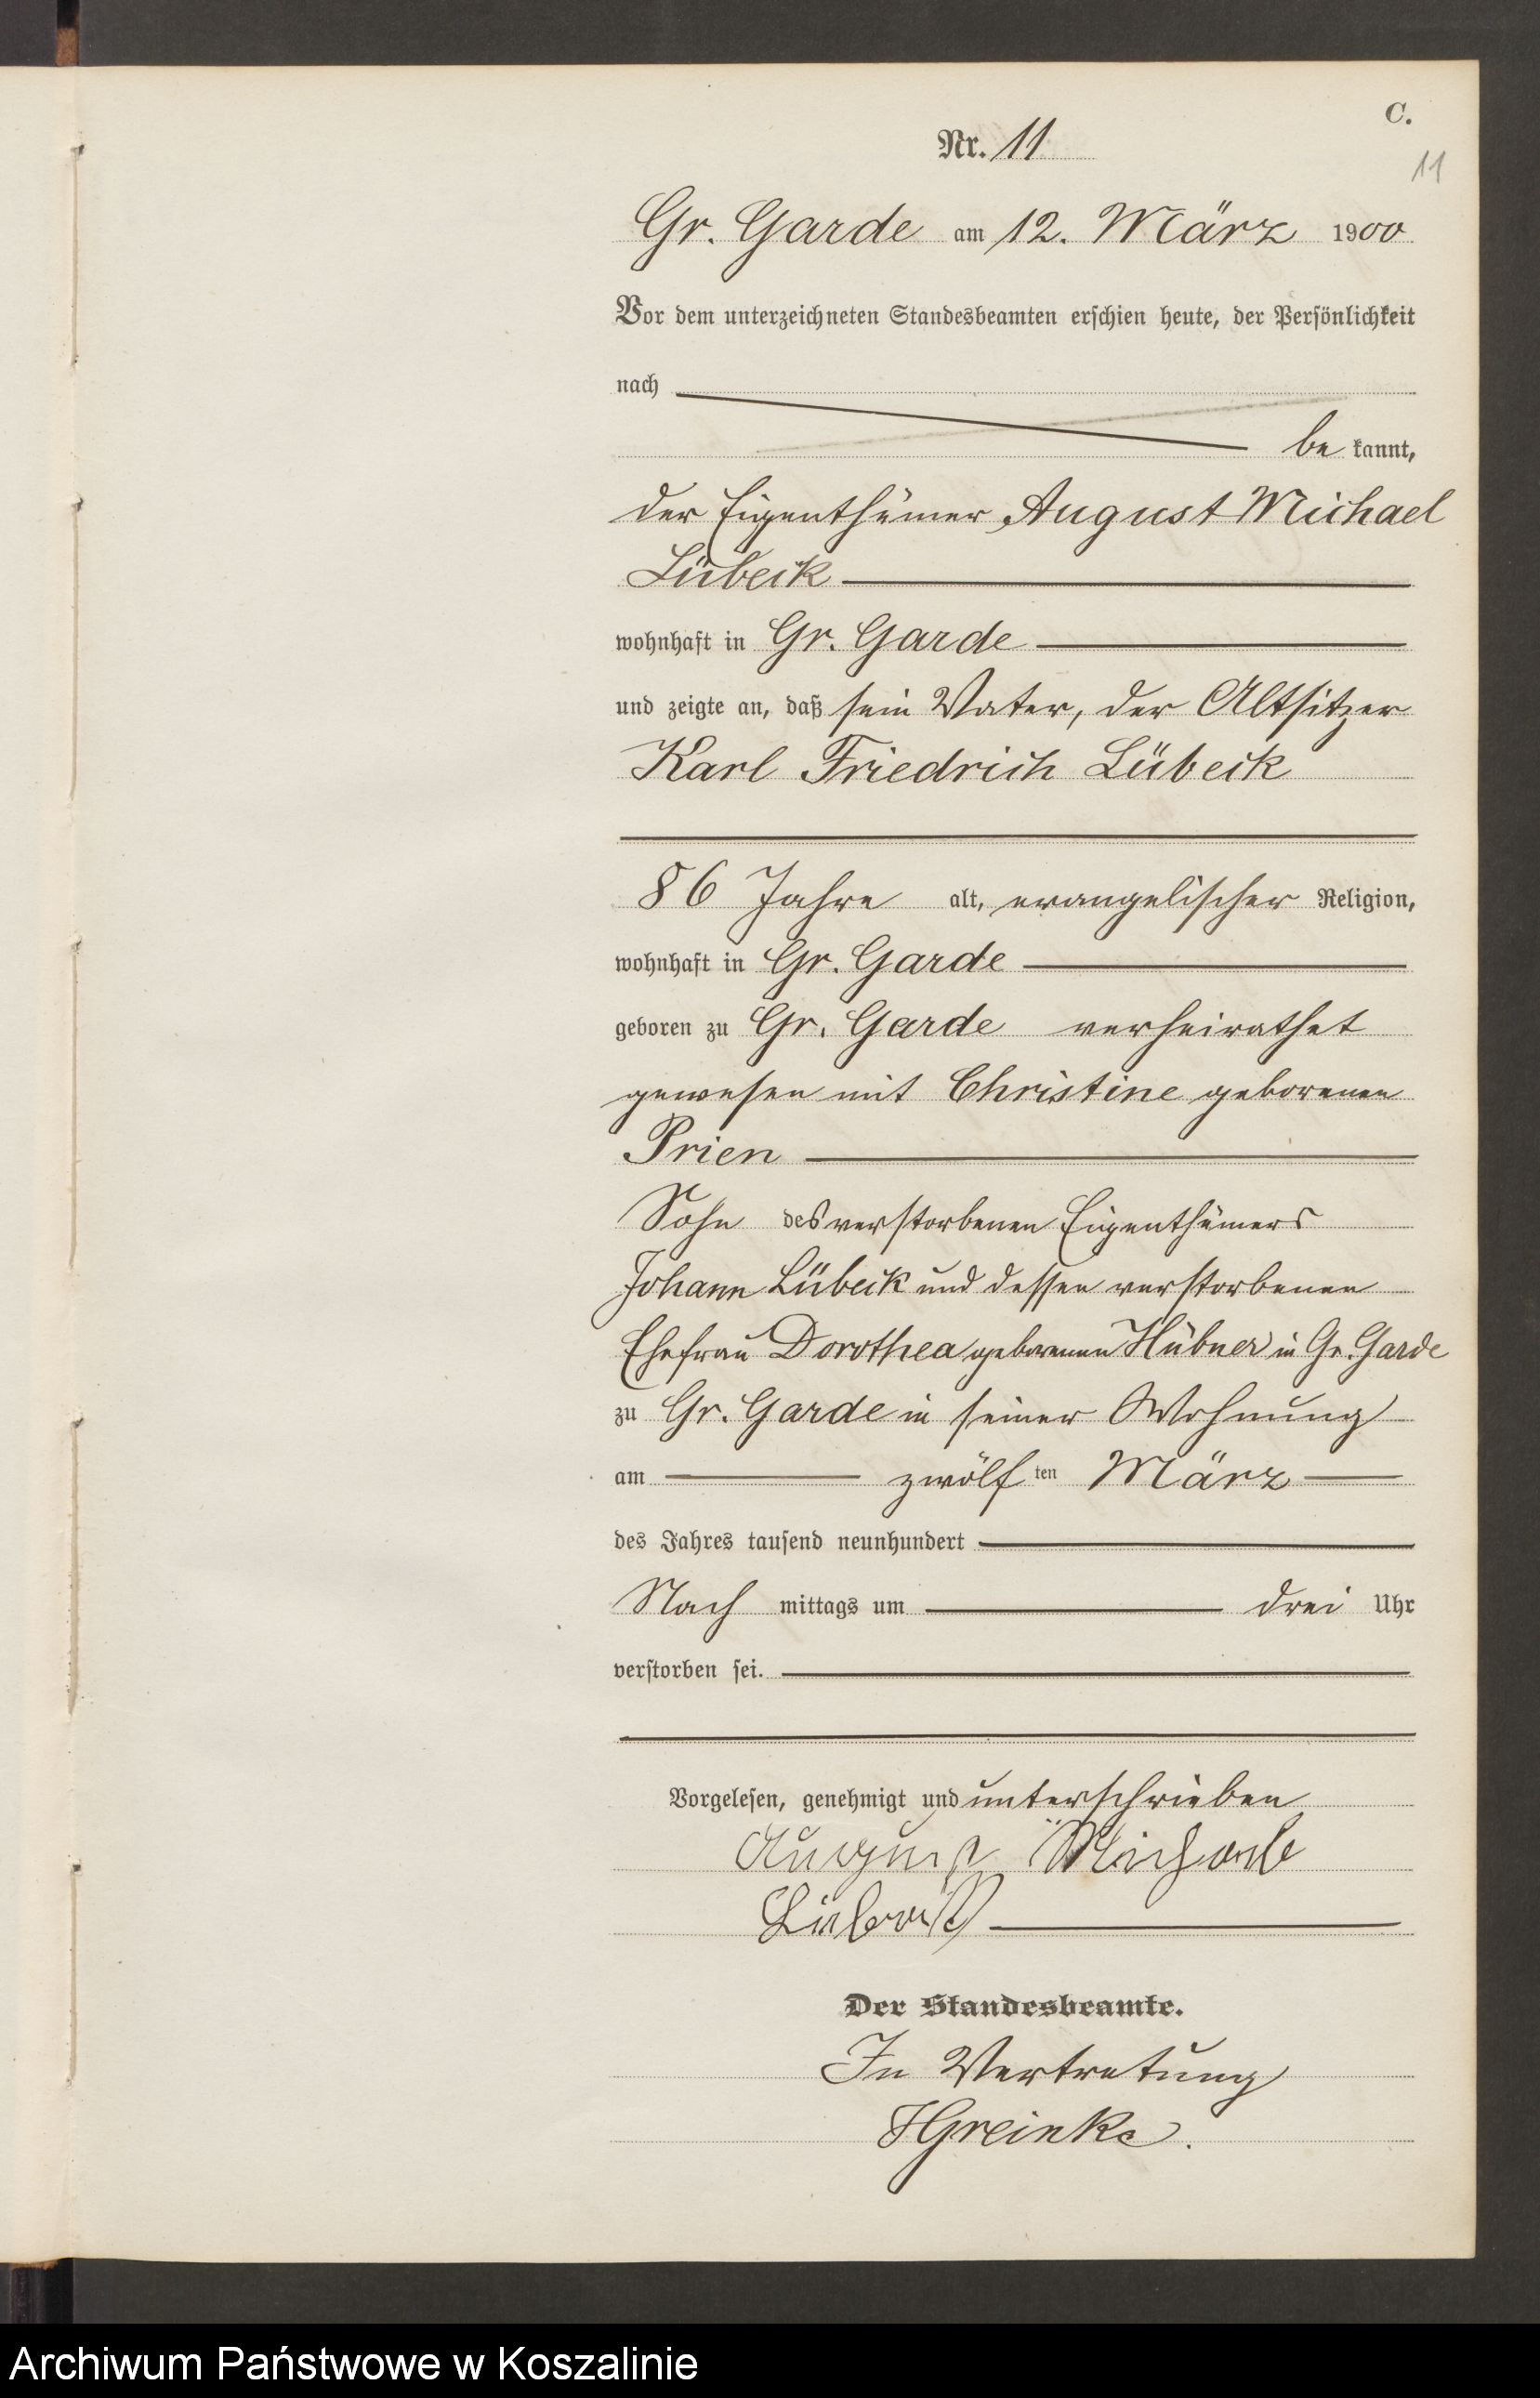 C.
Nr. 11
11
Gr. Garde am 12. März 1900
Vor dem unterzeichneten Standesbeamten erschien heute, der Persönlichkeit
nach
be kannt,
der Eigenthümer August Michael
Lübeck
wohnhaft in Gr. Garde
und zeigte an, daß sein Vater, der Altsitzer
Karl Friedrich Lübeck
86 Jahre alt, evangelischer Religion,
wohnhaft in Gr. Garde
geboren zu Gr. Garde verheirathet
gewesen mit Christine geborenen
Prien
Sohn des verstorbenen Eigenthümers
Johann Lübeck und dessen verstorbenen
Ehefrau Dorothea geborenen Hübner in Gr. Garde
zu Gr. Garde in seiner Wohnung
am zwölf ten März
des Jahres tausend neunhundert
Nach mittags um drei Uhr
verstorben sei.
Vorgelesen, genehmigt und unterschrieben
August Michael
Lübeck
Der Standesbeamte.
In Vertretung
HGreinke.
Archiwum Państwowe w Koszalinie